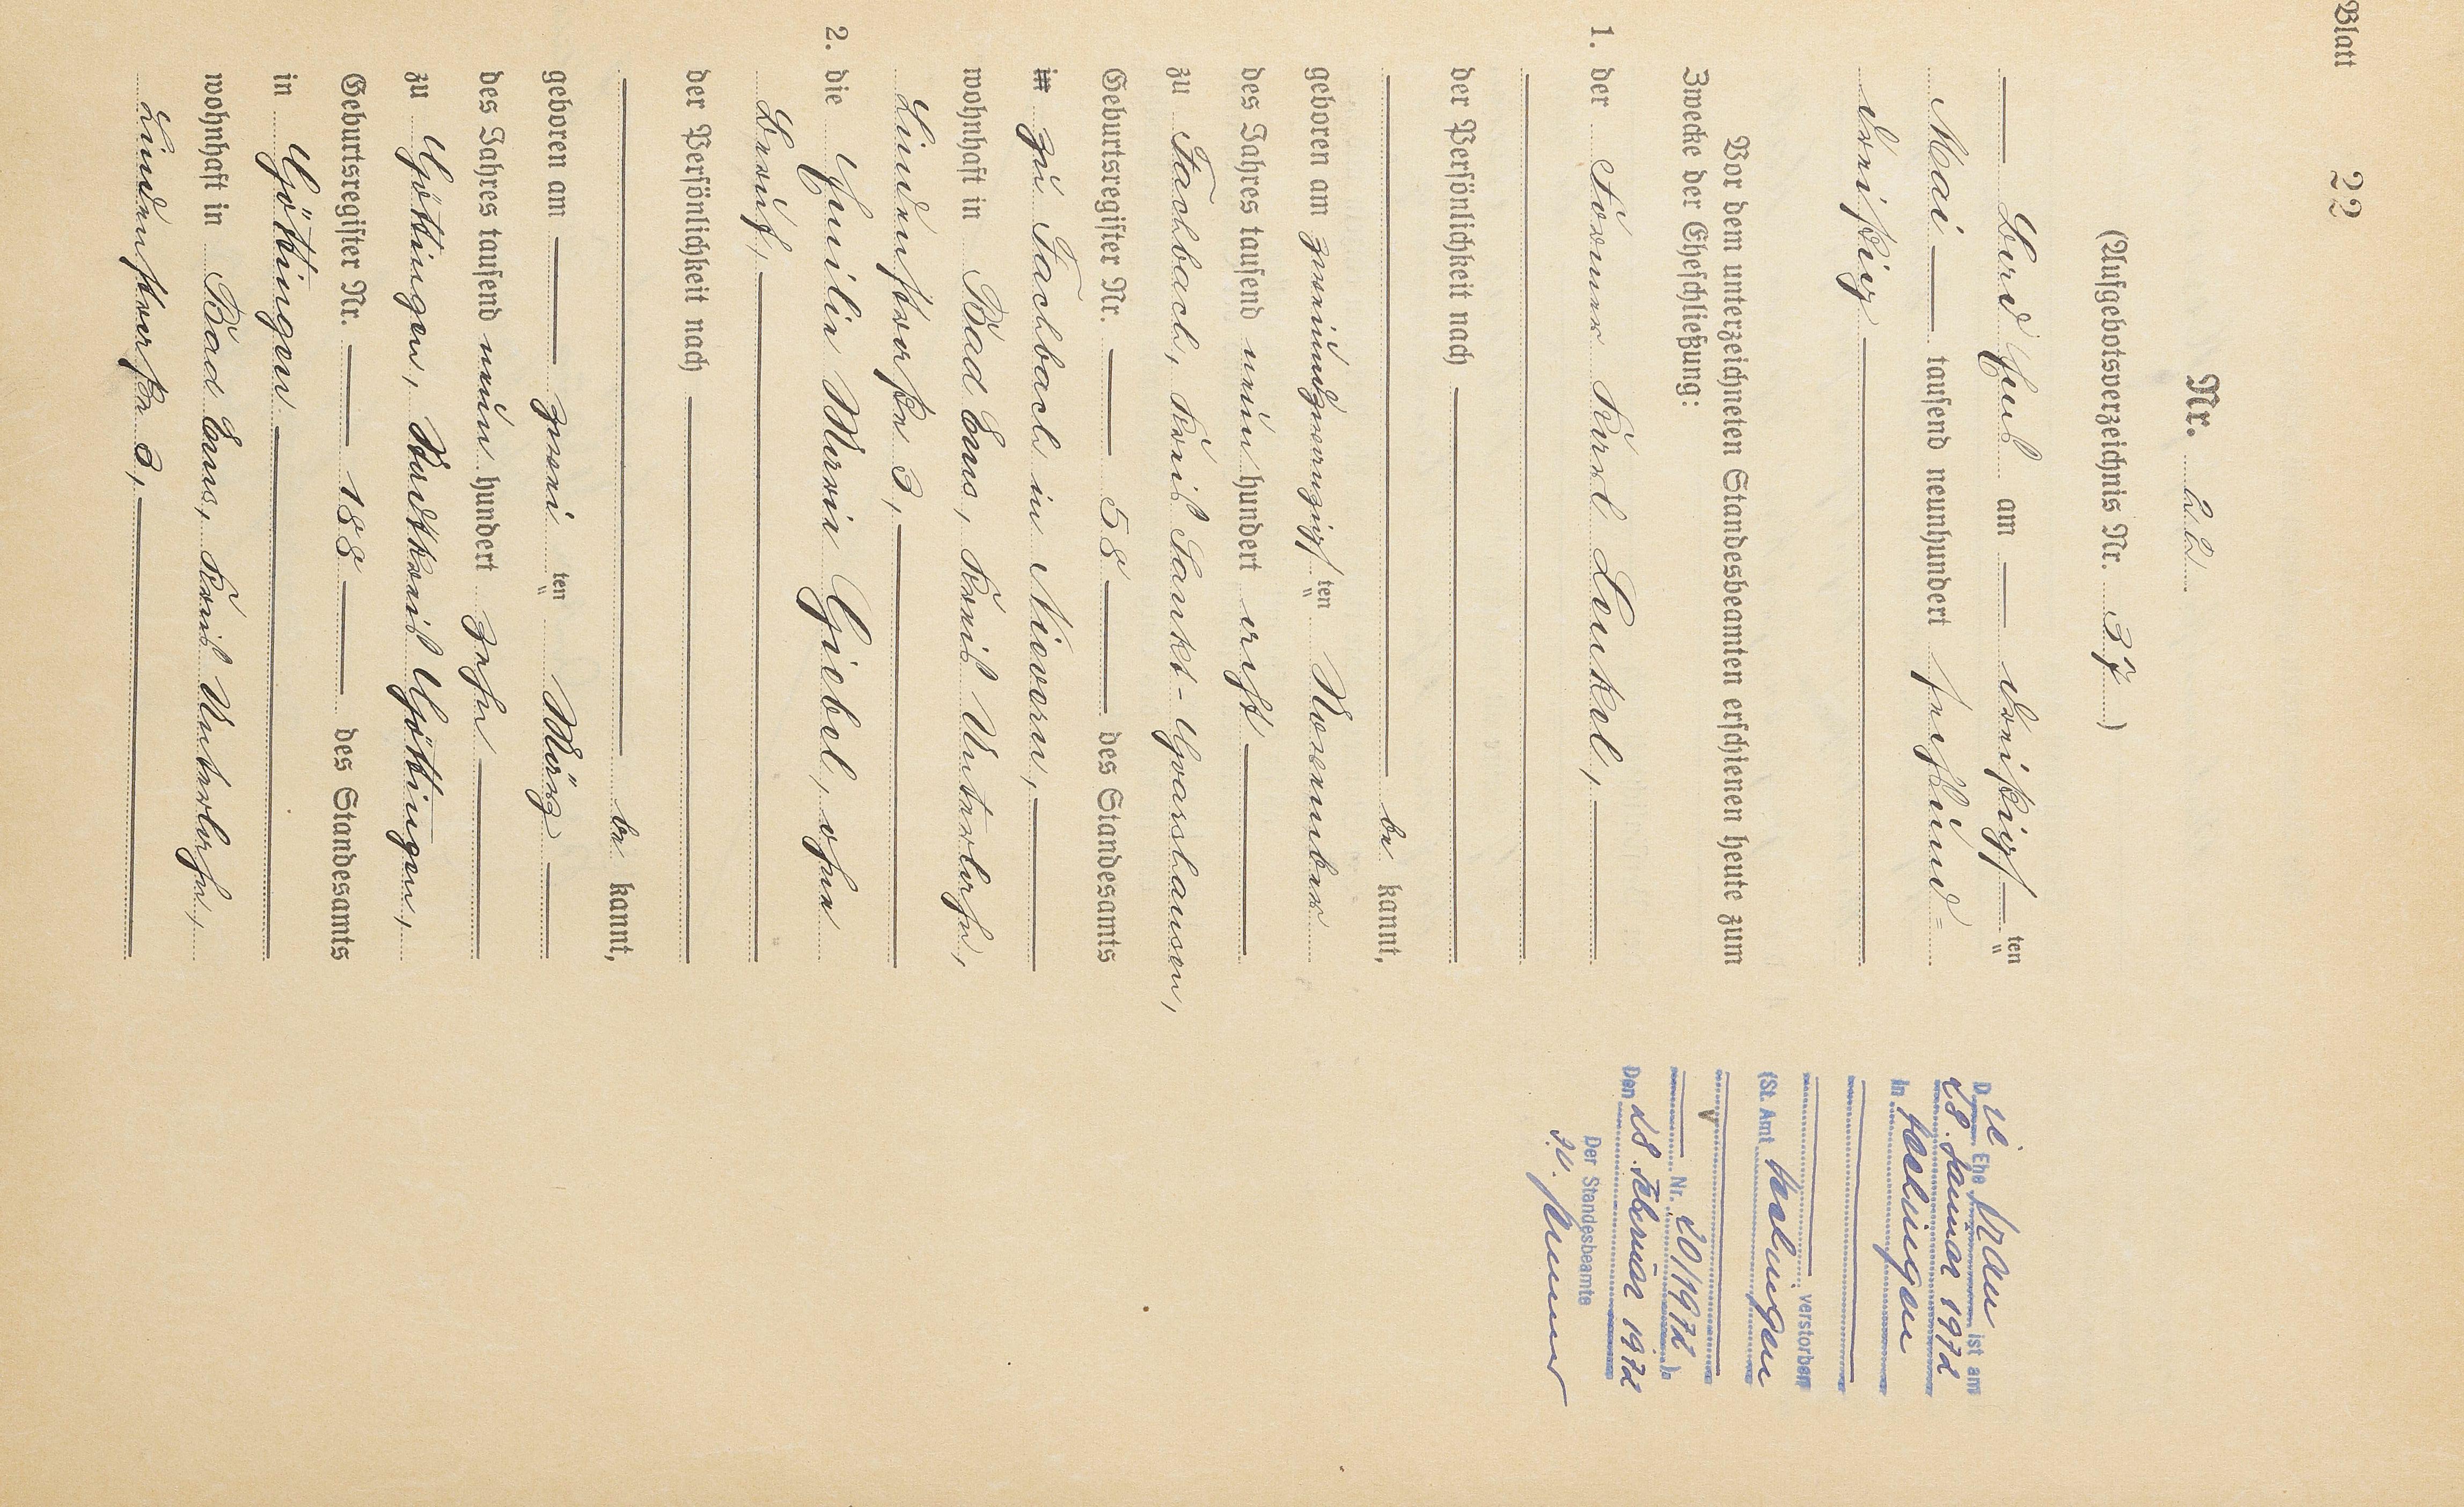 Blatt 22
Nr. 22.
(Aufgebotsverzeichnis Nr. 37)
Bad Ems am dreißigsten
Mai tausend neunhundert sechsund=
dreißig
Vor dem unterzeichneten Standesbeamten erschienen heute zum
Zwecke der Eheschließung:
1. der Former Karl Lenkel,
der Persönlichkeit nach
be kannt,
geboren am zweiundzwanzigsten November
des Jahres tausend neun hundert acht
zu Fachbach, Kreis Sankt-Goarshausen,
Geburtsregister Nr. 58 des Standesamts
in zu Fachbach in Nievern,
wohnhaft in Bad Ems, Kreis Unterlahn,
Lindenstraße 3,
2. die Emilie Maria Giebel, ohne
Beruf,
der Persönlichkeit nach
be kannt,
geboren am zwei ten März
des Jahres tausend neun hundert zehn
zu Göttingen, Stadtkreis Göttingen,
Geburtsregister Nr. 188 des Standesamts
in Göttingen
wohnhaft in Bad Ems, Kreis Unterlahn,
Lindenstraße 3,
Die Ehe frau ist am
28. Januar 1972
in
verstorben
(St. Amt
Nr. 20/1972).
Den 28. Februar 1972
Der Standesbeamte
I.V.